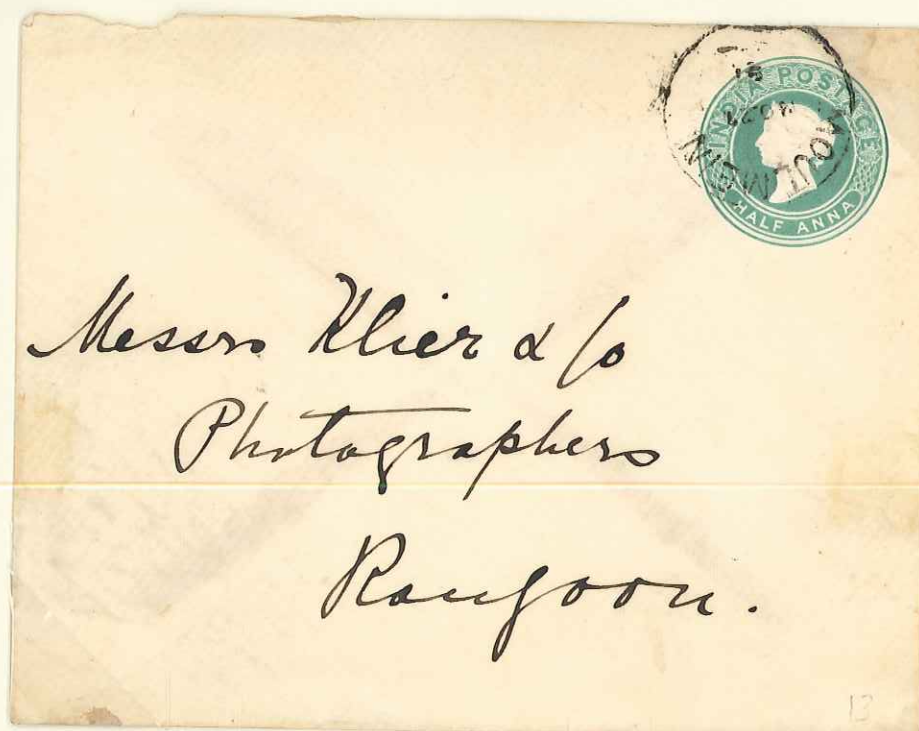 INDIA POSTAGE
HALF ANNA
MOULMEIN
91
Messrs Klier & Co
Photographers
Rangoon.
13